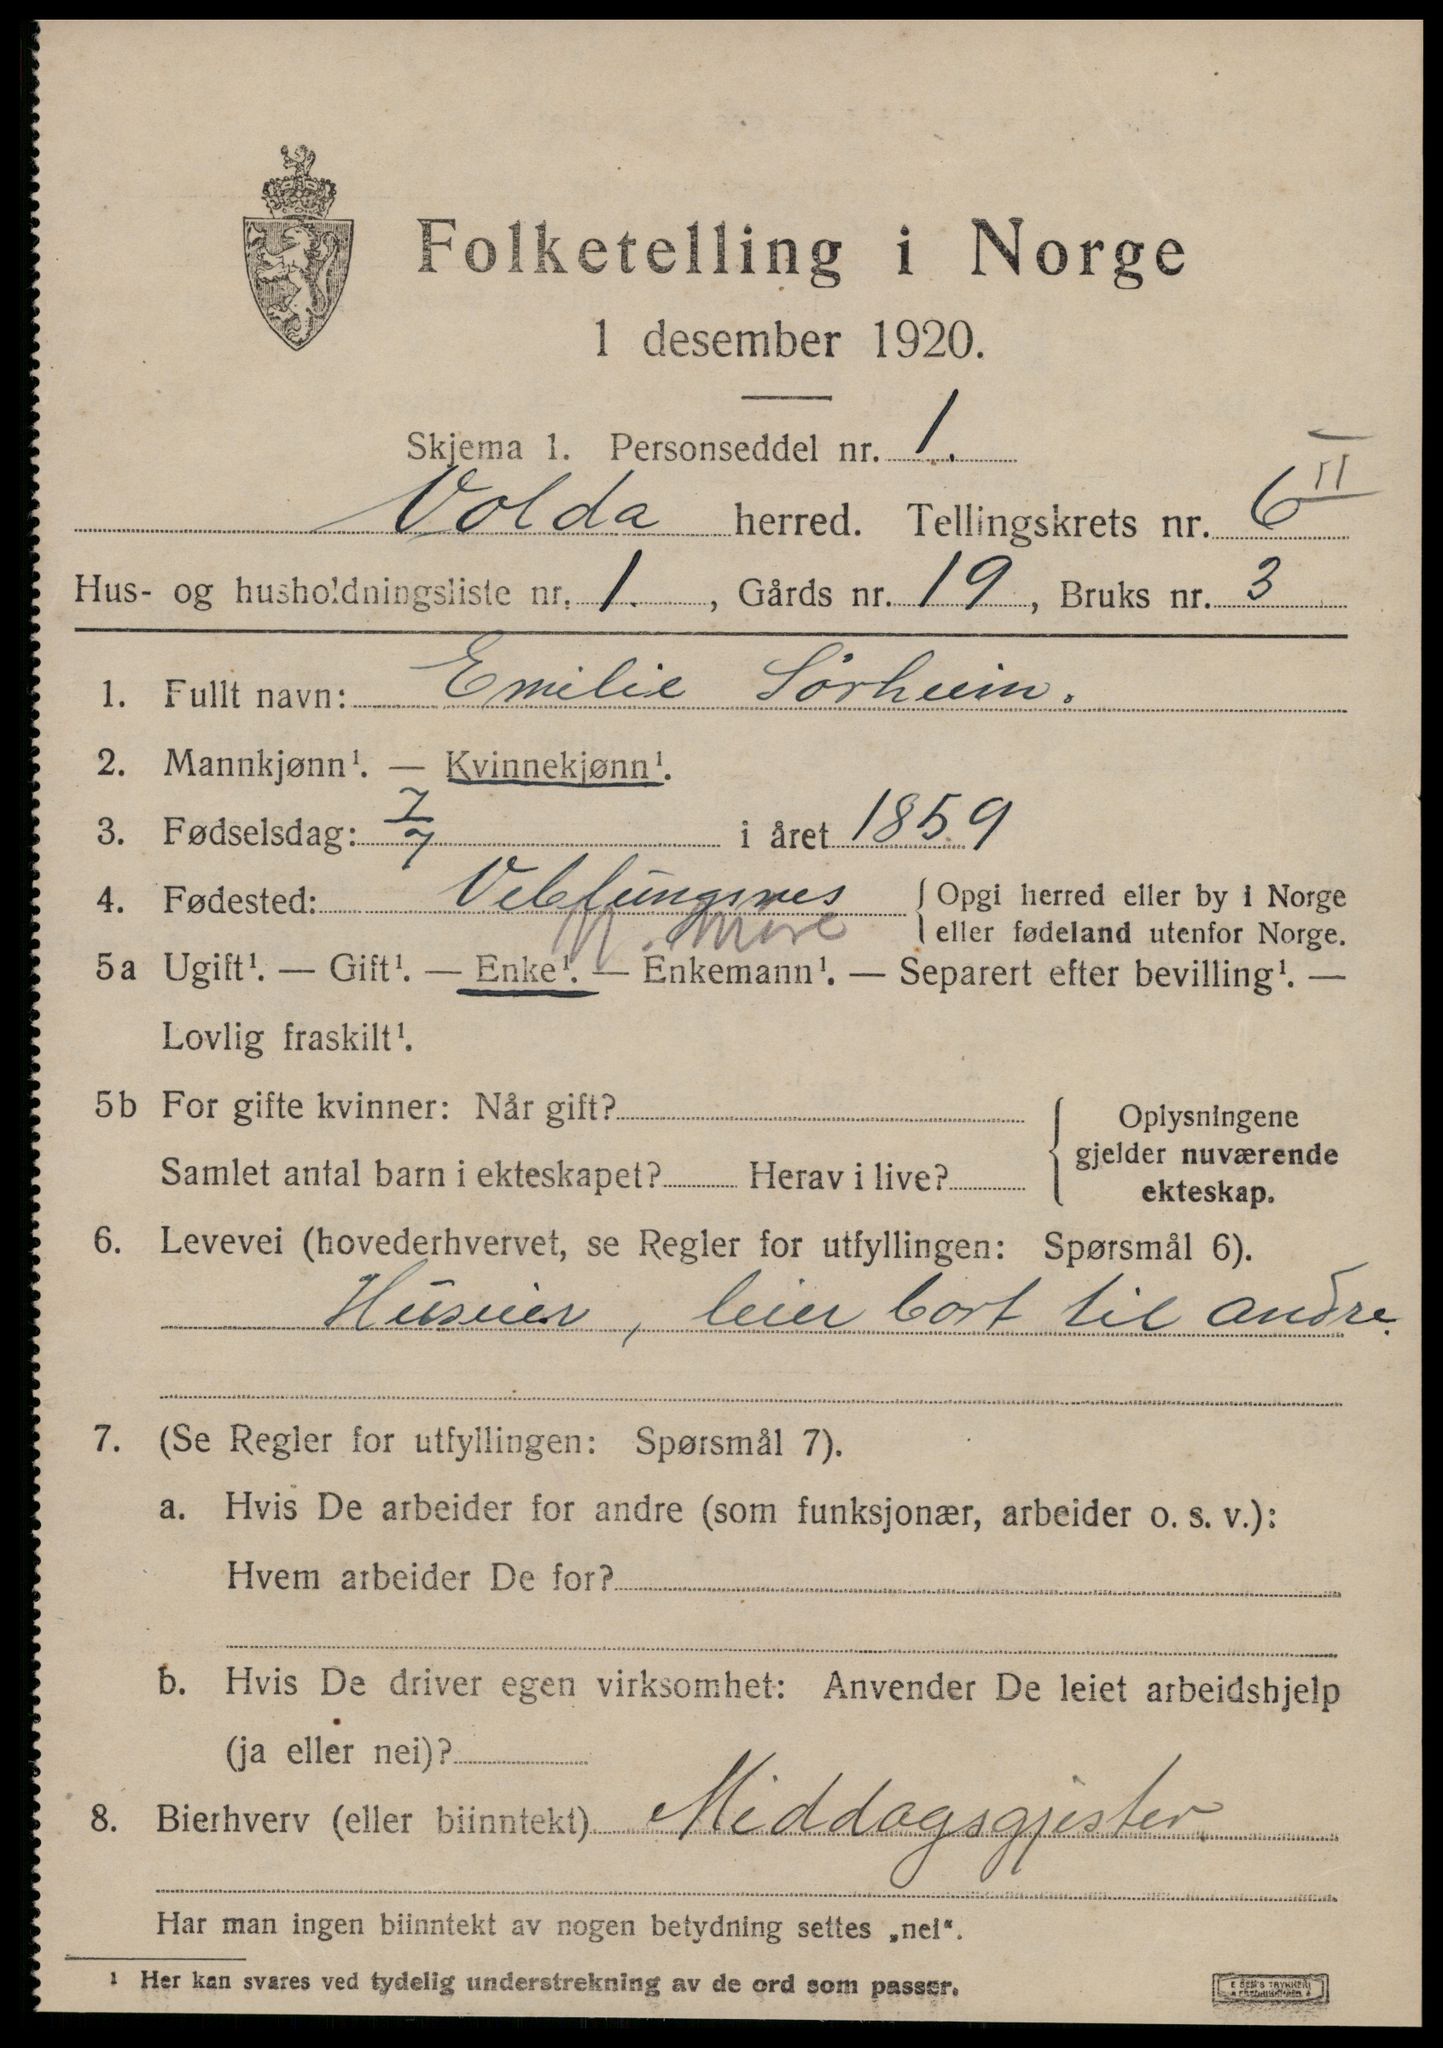 Folketelling i Norge
1 desember 1920.
Skjema 1. Personseddel nr. 1.
Volda herred. Tellingskrets nr. 6 II
Hus- og husholdningsliste nr. 1., Gårds nr. 19, Bruks nr. 3
1. Fullt navn: Emilie Sörheim.
2. Mannkjønn¹. — Kvinnekjønn¹.
3. Fødselsdag: 7/7 i året 1859
4. Fødested: Veblungsnes { Opgi herred eller by i Norge
eller fødeland utenfor Norge.
N. Møre
5a Ugift¹. — Gift¹. — Enke¹. — Enkemann¹. — Separert efter bevilling¹. —
Lovlig fraskilt¹.
5b For gifte kvinner: Når gift?
Samlet antal barn i ekteskapet? Herav i live?
Oplysningene
gjelder nuværende
ekteskap.
6. Levevei (hovederhvervet, se Regler for utfyllingen: Spørsmål 6).
Huseier, leier bort til andre.
7. (Se Regler for utfyllingen: Spørsmål 7).
a. Hvis De arbeider for andre (som funksjonær, arbeider o. s. v.):
Hvem arbeider De for?
b. Hvis De driver egen virksomhet: Anvender De leiet arbeidshjelp
(ja eller nei)?
8. Bierhverv (eller biinntekt) Middagsgjester.
Har man ingen biinntekt av nogen betydning settes „nei“.
¹ Her kan svares ved tydelig understrekning av de ord som passer.